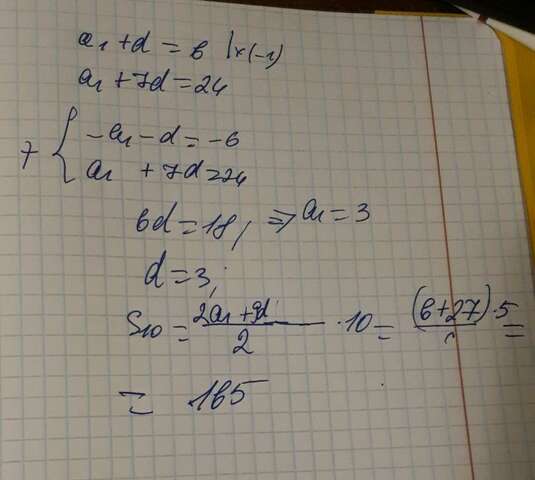 a₁ + d = 6 | × (-1)
a₁ + 7d = 24
+ { -a₁ - d = -6
a₁ + 7d = 24
6d = 18, ⇒ a₁ = 3
d = 3;
S₁₀ = (2a₁ + 9d)/2 · 10 = (6 + 27) · 5 =
= 165